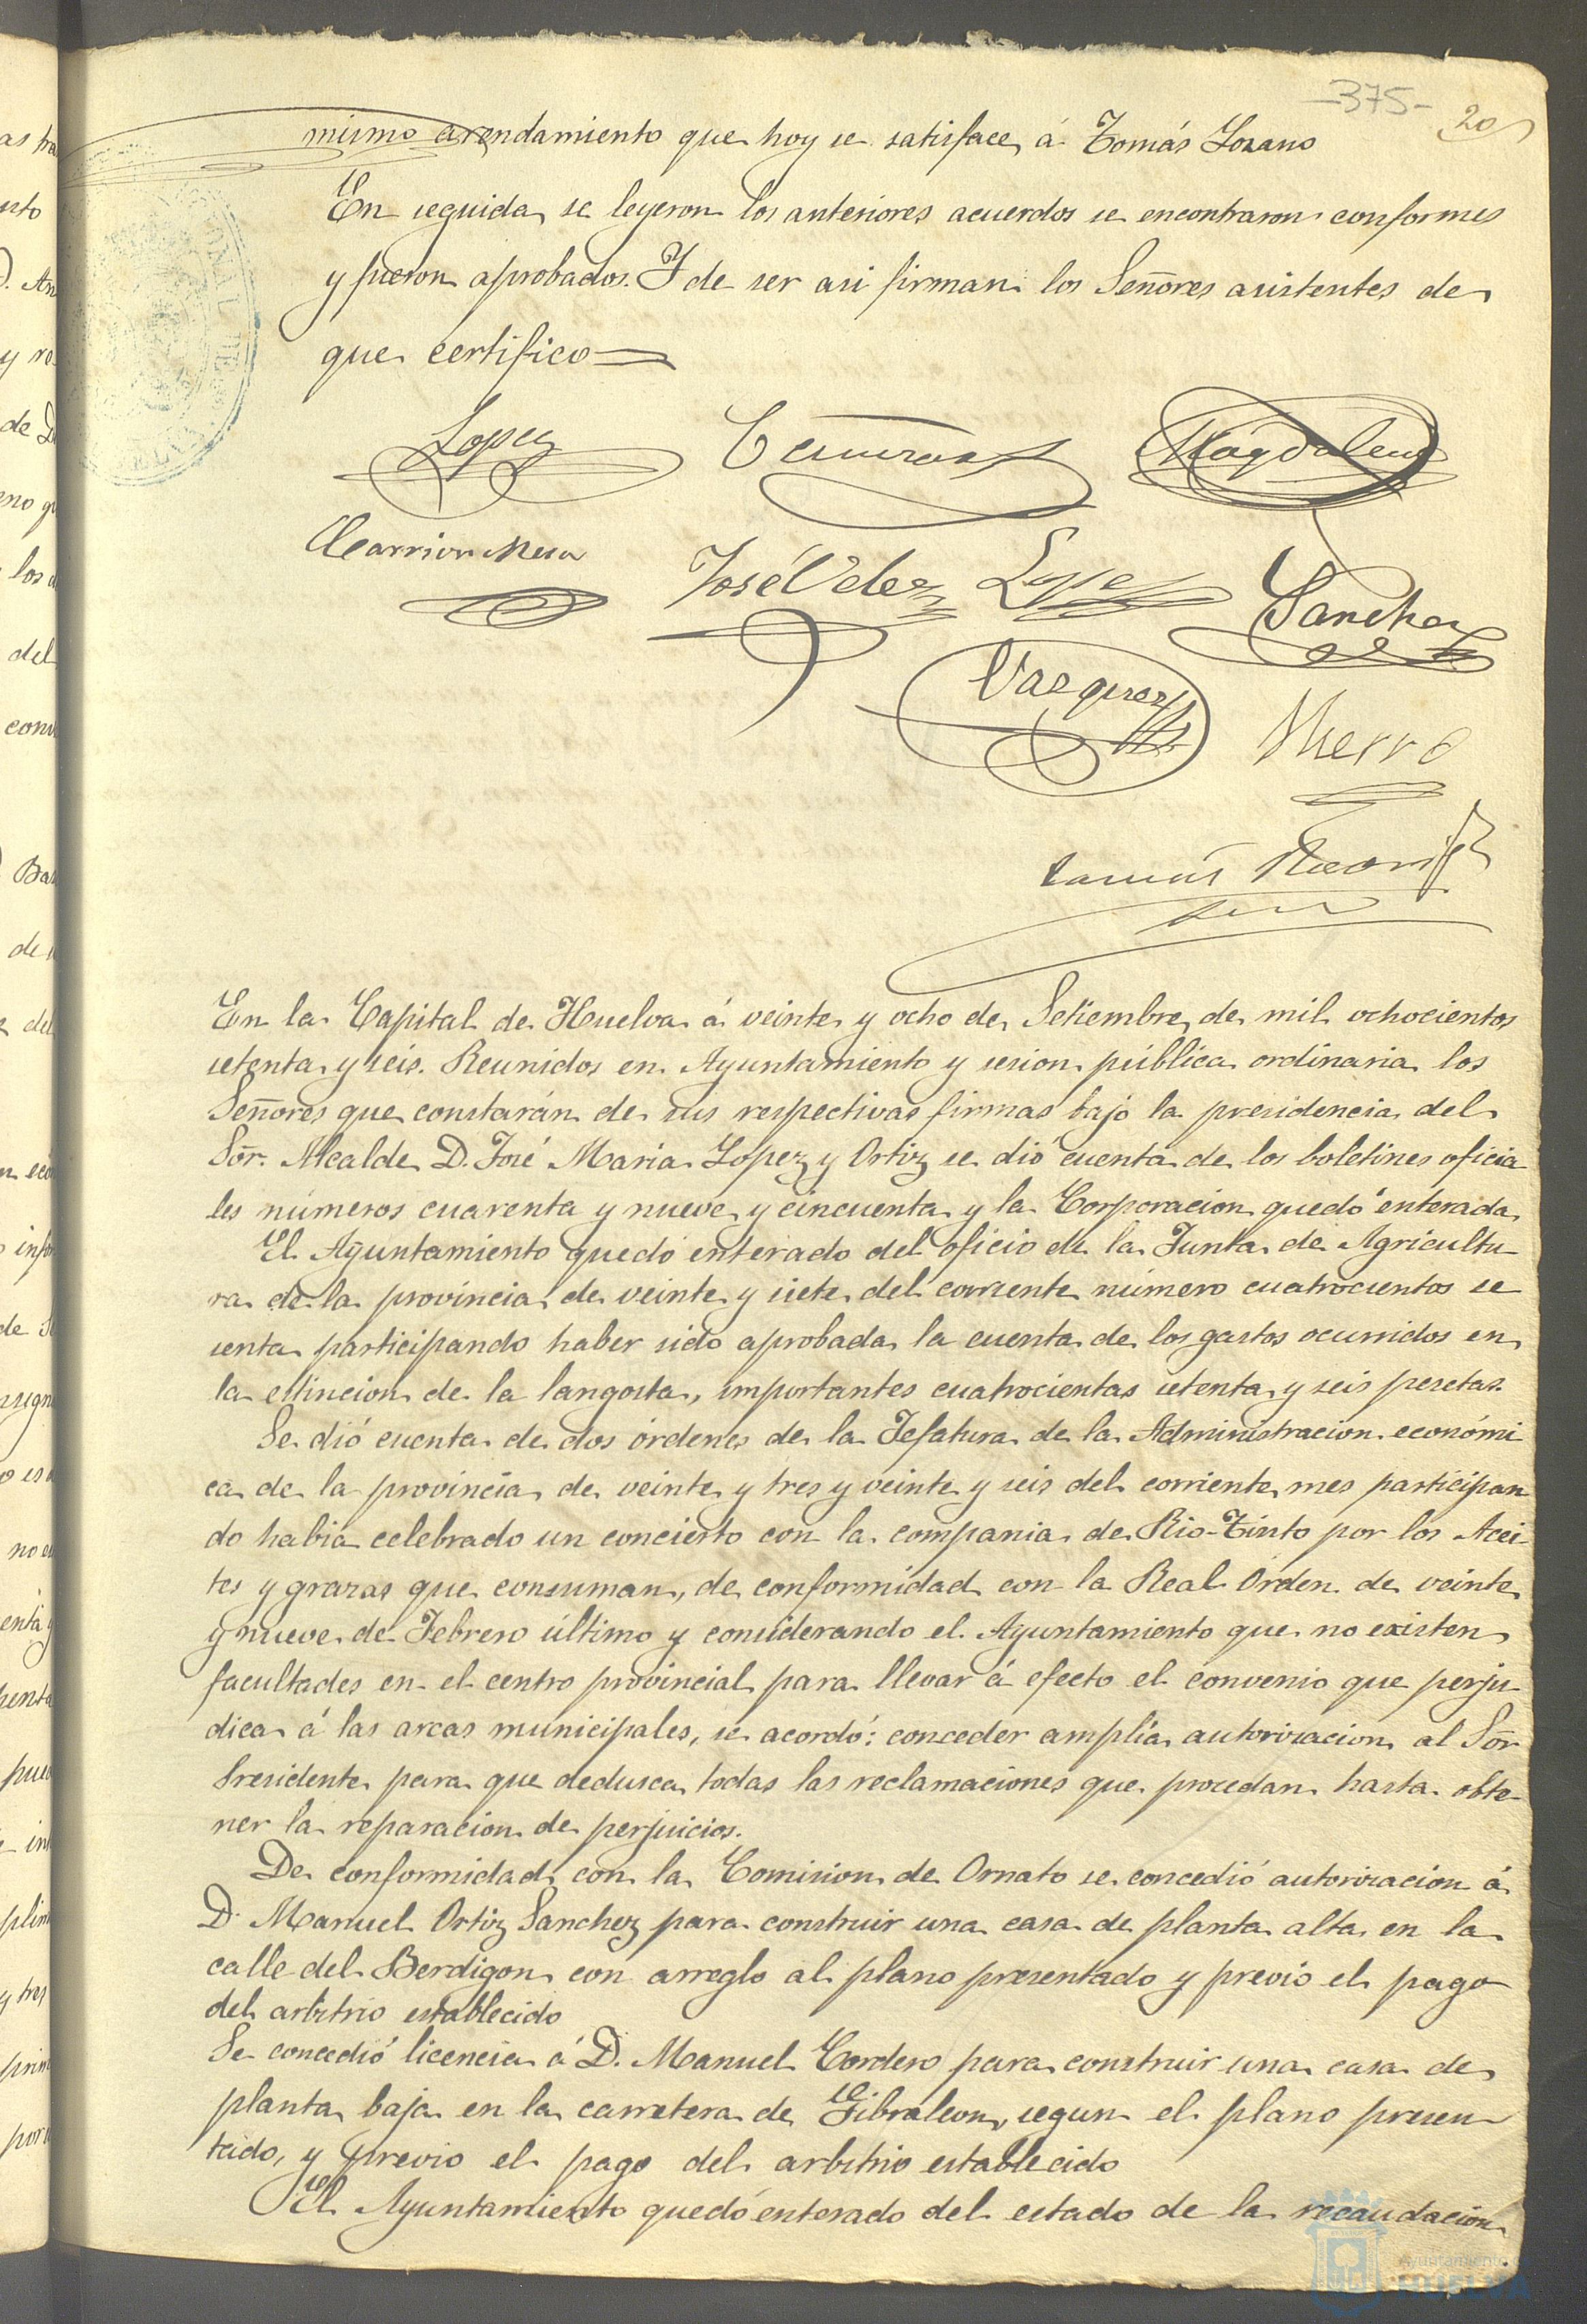 -375-
20
mismo arendamiento que hoy se satisface á Tomás Lozano
En seguida se leyeron los anteriores acuerdos se encontraron conformes
y fueron aprobados. Y de ser asi firman los Señores asistentes de
que certifico
Lopez
Magdalena
Carrion Mesa
José Velez
Lopez
Sanchez
Vazquez
Hierro
En la Capital de Huelva á veinte y ocho de Setiembre de mil ochocientos
setenta y seis. Reunidos en Ayuntamiento y sesion pública ordinaria los
Señores que constarán de sus respectivas firmas bajo la presidencia del
Sõr. Alcalde D. José Maria Lopez y Ortiz se dió cuenta de los boletines oficia
les números cuarenta y nueve y cincuenta y la Corporacion quedó enterada
El Ayuntamiento quedó enterado del oficio de la Junta de Agricultu-
ra de la provincia de veinte y siete del corriente número cuatrocientos se
senta participando haber sido aprobada la cuenta de los gastos ocurridos en
la estincion de la langosta, importantes cuatrocientas setenta y seis pesetas.
Se dió cuenta de dos órdenes de la Jefatura de la Administracion económi
ca de la provincia de veinte y tres y veinte y seis del corriente mes participan
do habia celebrado un concierto con la compania de Rio-Tinto por los Acei-
tes y grasas que consuman, de conformidad con la Real Orden de veinte
y nueve de Febrero último y considerando el Ayuntamiento que no existen
facultades en el centro provincial para llevar á efecto el convenio que perju
dica á las arcas municipales, se acordó: conceder amplia autorizacion al Sõr
Presidente para que deduzca todas las reclamaciones que procedan hasta obte-
ner la reparacion de perjuicios.
De conformidad con la Comision de Ornato se concedió autorizacion á
D. Manuel Ortiz Sanchez para construir una casa de planta alta en la
calle del Berdigon con arreglo al plano presentado y previo el pago
del arbitrio establecido
Se concedió licencia á D. Manuel Cordero para construir una casa de
planta baja en la carretera de Gibraleon, segun el plano presen
tado, y previo el pago del arbitrio establecido
El Ayuntamiento quedó enterado del estado de la recaudacion
Ayuntamiento de
HUELVA